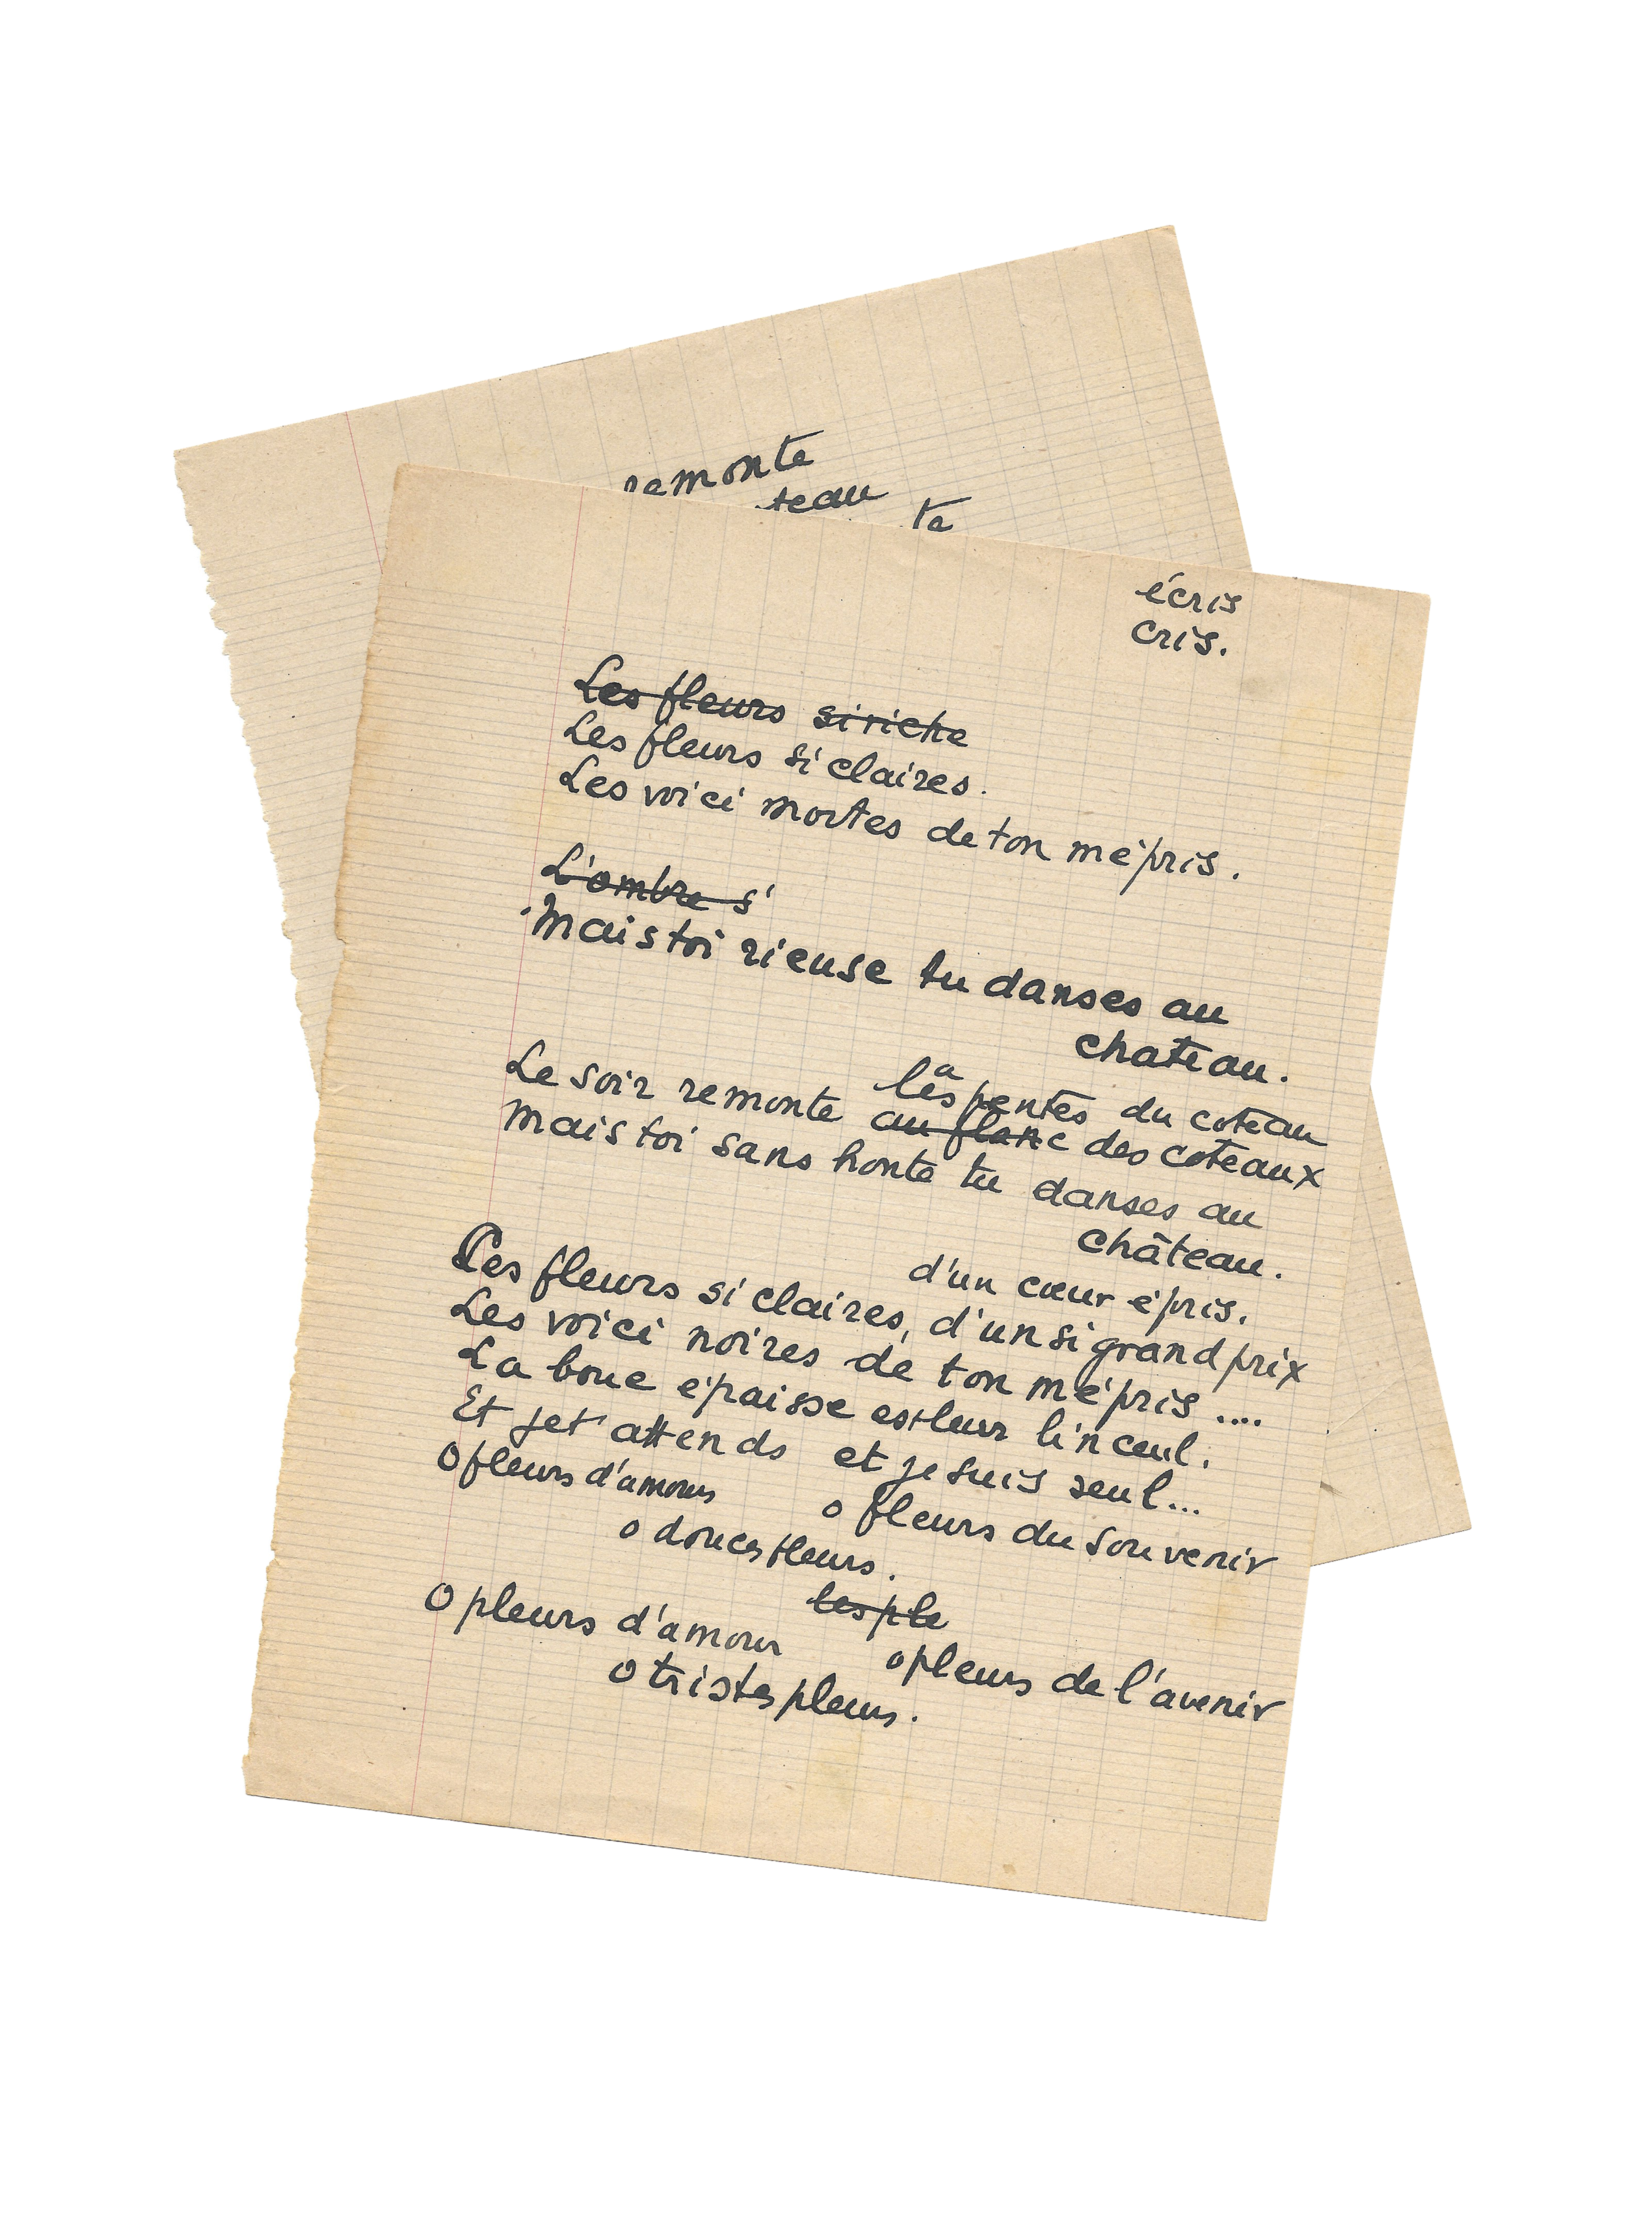 remonte
teau
te
écris
cris.
Les fleurs si riche
Les fleurs si claires.
Les voici mortes de ton mépris.
L'ombre s'
Mais toi rieuse tu danses au
chateau.
la
les pentes du coteau
Le soir remonte au flanc des coteaux
Mais toi sans honte tu danses au
château.
d'un cœur épris.
Les fleurs si claires, d'un si grand prix
Les voici noires de ton mépris....
La boue épaisse est leur linceul.
Et je t'attends et je suis seul...
O fleurs d'amours o fleurs du souvenir
o douces fleurs.
les ple
O pleurs d'amour o pleurs de l'avenir
O tristes pleurs.